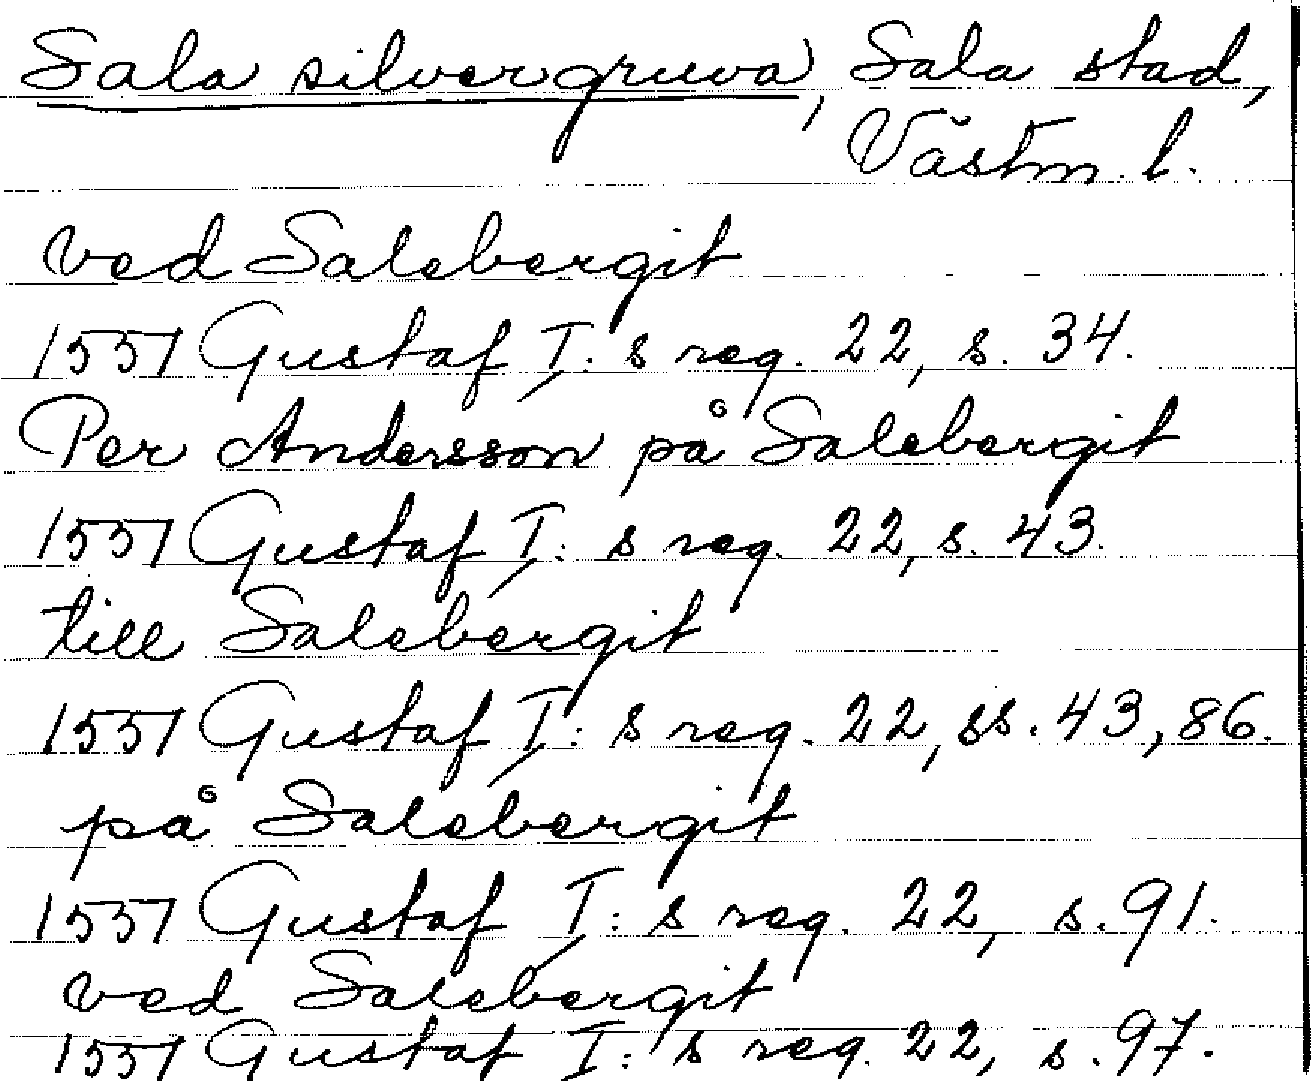 Sala silvergruva, Sala stad,
Västm. l.
ved Salebergit
1551 Gustaf I: s reg. 22, s. 34.
Per Andersson på Salebergit
1551 Gustaf I: s reg. 22, s. 43.
till Salebergit
1551 Gustaf I: s reg. 22, ss. 43, 86.
på Salebergit
1551 Gustaf I: s reg. 22, s. 91.
ved Salebergit
1551 Gustaf I: s reg. 22, s. 97.